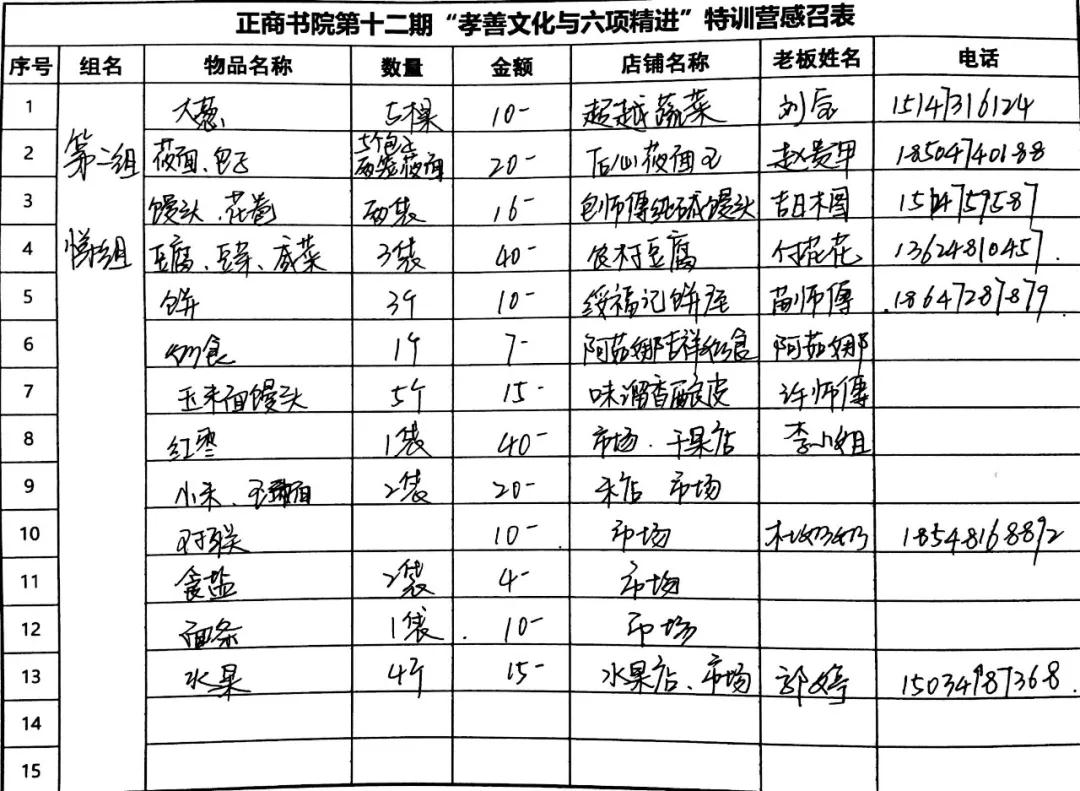 正商书院第十二期“孝善文化与六项精进”特训营感召表
序号 组名 物品名称 数量 金额 店铺名称 老板姓名 电话
1 大葱 5棵 10- 超越蔬菜 15147316124
2 第二组 莜面、包子 5个包子 两笼莜面 20- 莜面 赵贵甲 18504740188
3 馒头、花卷 两袋 16- 包师傅纯碱馒头 吉日木图 1514759587
4 组 豆腐、豆芽、咸菜 3袋 40- 农村豆腐 付花花 13624810457.
5 饼 3个 10- 绥福记饼屋 苗师傅 18647287879
6 奶食 1个 7- 阿茹娜吉祥奶食 阿茹娜
7 玉米面馒头 5个 15- 味调香酿皮 许师傅
8 红枣 1袋 40- 市场.干果店 李小姐
9 小米、玉米面 2袋 20- 米店 市场
10 对联 10- 市场 杜奶奶 18548168892
11 食盐 2袋 4- 市场
12 面条 1袋. 10- 市场
13 水果 4斤 15- 水果店、市场 郭婷 15034987368.
14
15